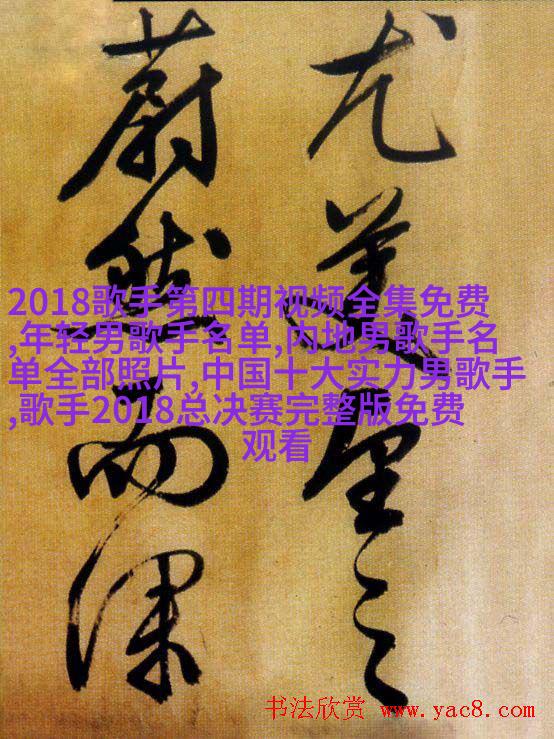 尤美望之
蔚然而深
2018歌手第四期视频全集免费
,年轻男歌手名单,内地男歌手名
单全部照片,中国十大实力男歌手
,歌手2018总决赛完整版免费
观看
书法欣赏 www.yac8.com